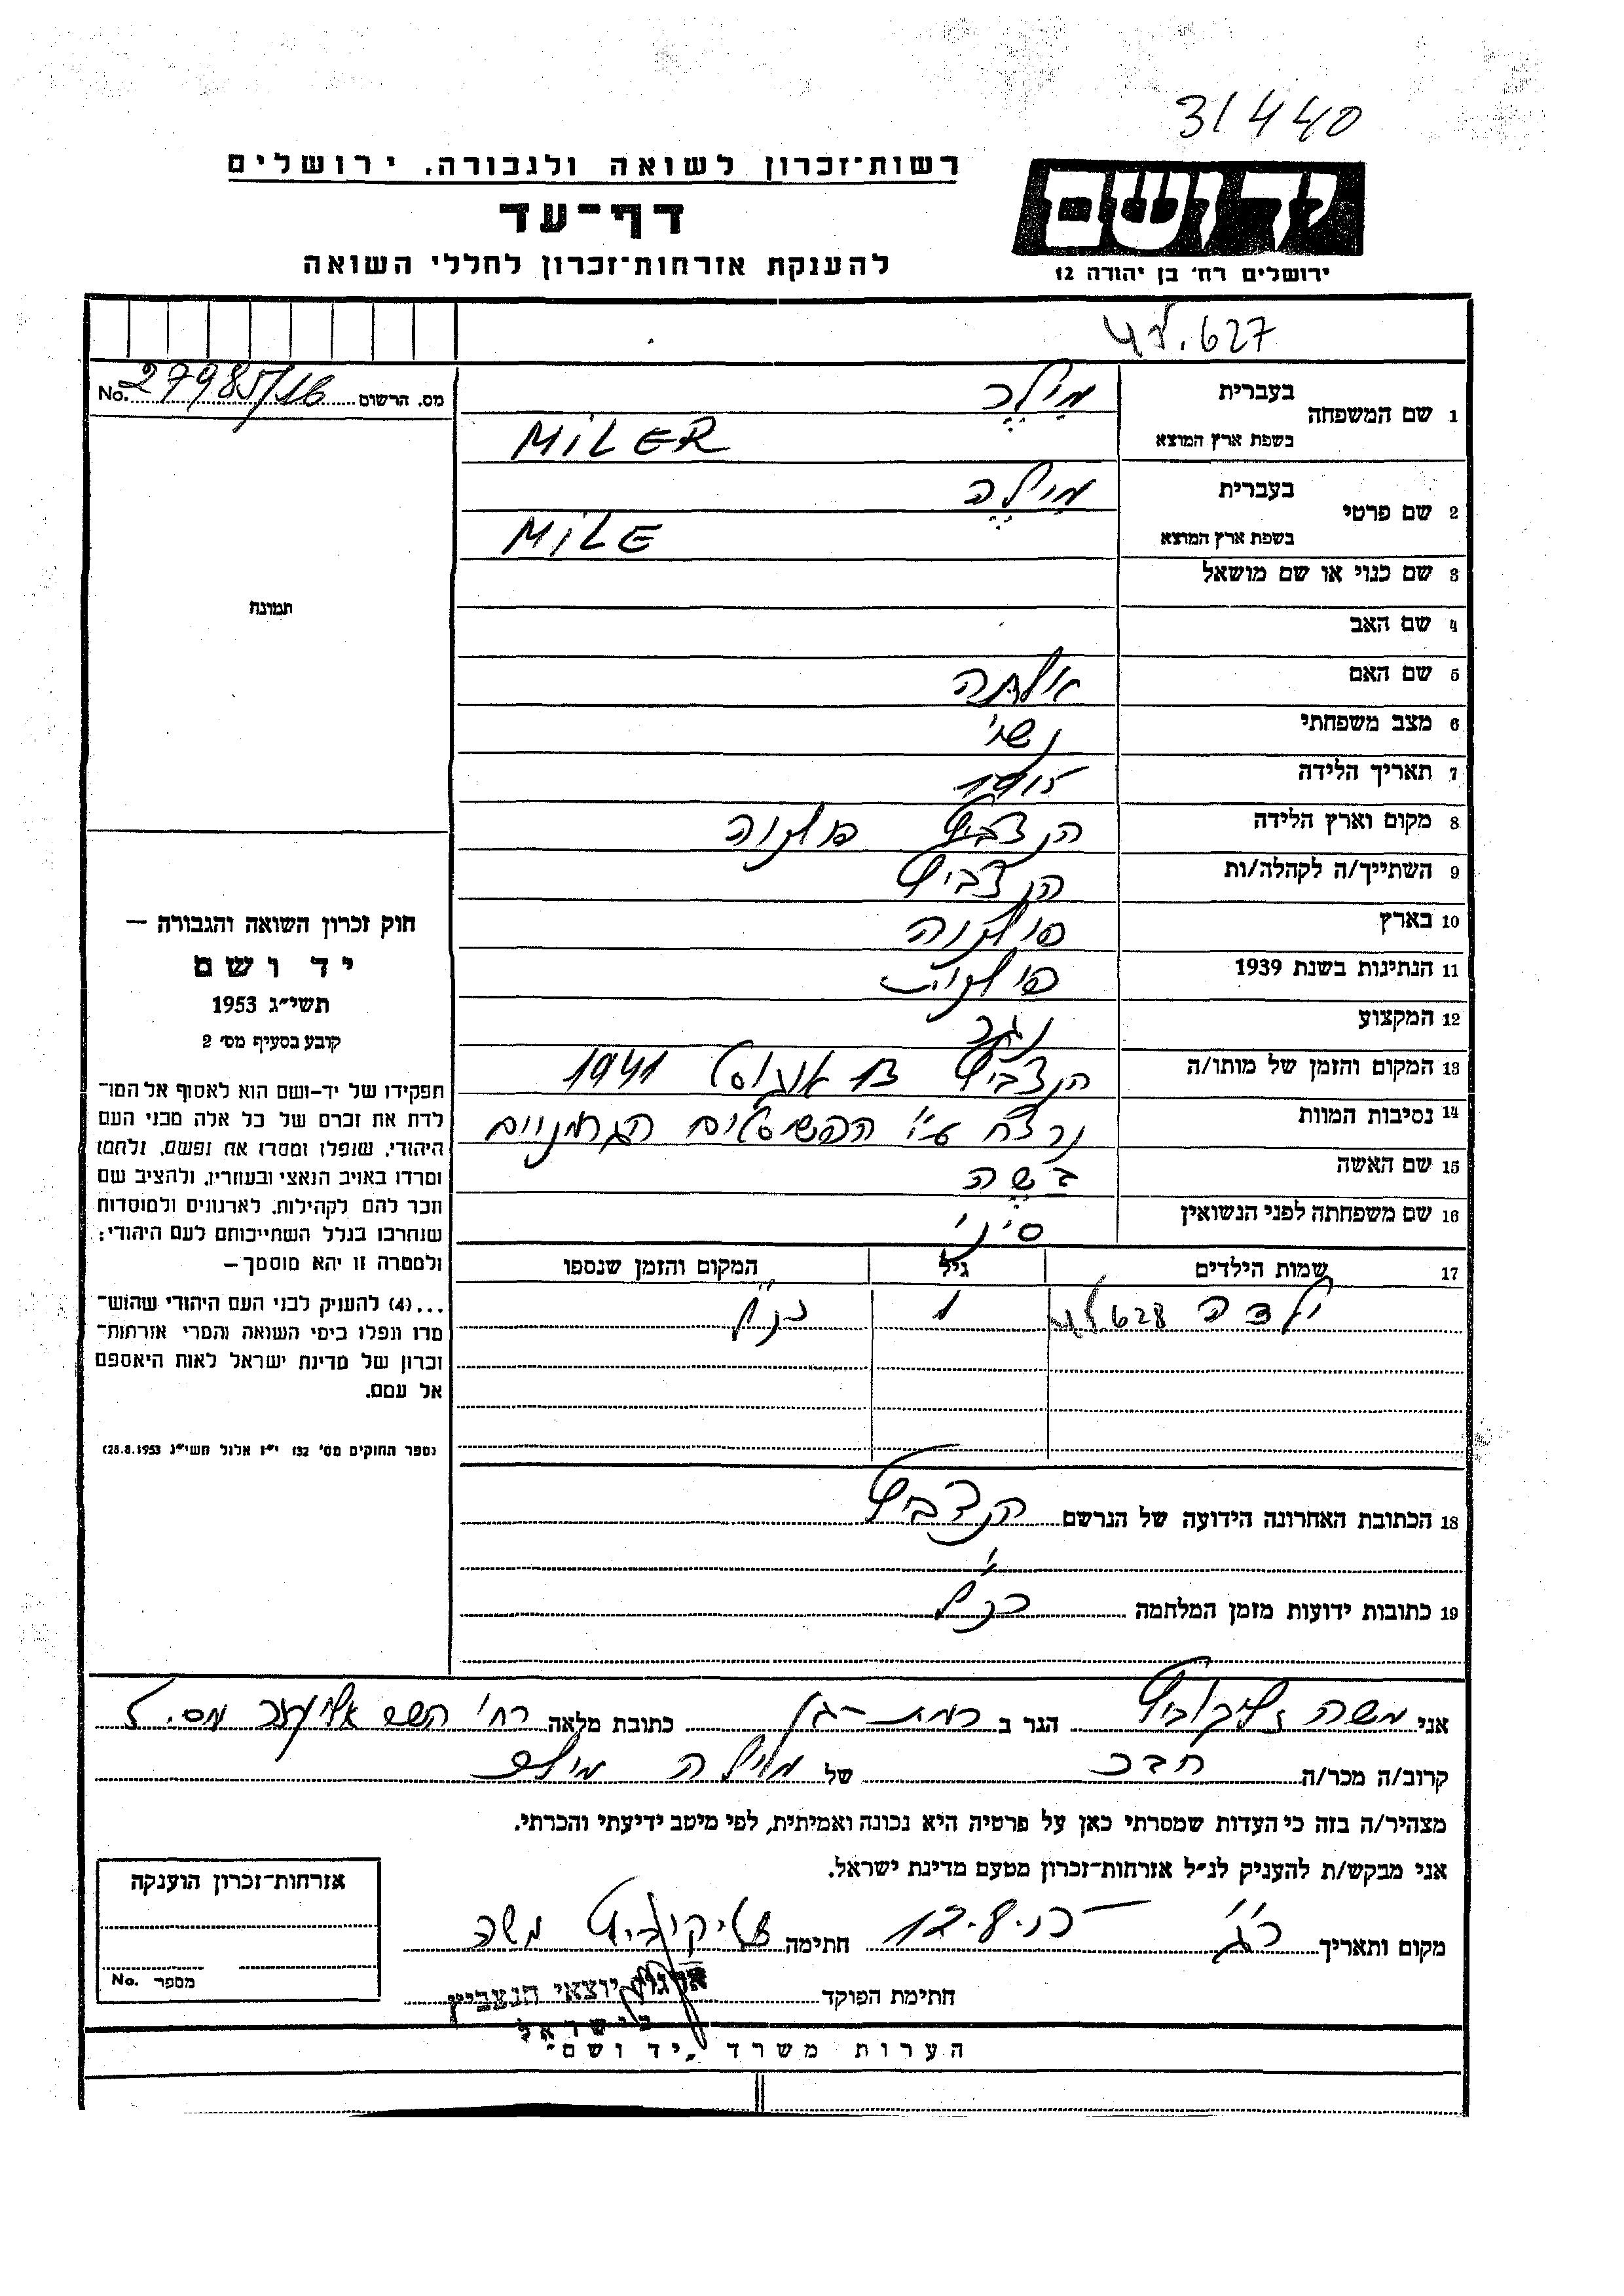 31440
רשות־זכרון לשואה ולגבורה, ירושלים
דף־עד
להענקת אזרחות־זכרון לחללי השואה
יד ושם
ירושלים רח' בן יהודה 12
627
מס. הרשום 27985/16 No.
תמונה
1 שם המשפחה בעברית מילר
בשפת ארץ המוצא MILER
2 שם פרטי בעברית מילה
בשפת ארץ המוצא MILE
3 שם כנוי או שם מושאל
4 שם האב
5 שם האם
6 מצב משפחתי נשוי
7 תאריך הלידה 1915
8 מקום וארץ הלידה הנצביץ פולניה
9 השתייך/ה לקהלה/ות הנצביץ
10 בארץ פולניה
11 הנתינות בשנת 1939 פולנית
12 המקצוע נגר
13 המקום והזמן של מותו/ה הנצביץ אוגוסט 1941
14 נסיבות המוות נרצח ע"י הפשיסטים הגרמניים
15 שם האשה בשה
16 שם משפחתה לפני הנשואין
17 שמות הילדים גיל המקום והזמן שנספו
ילדה 628 1 כנ"ל
18 הכתובת האחרונה הידועה של הנרשם הנצביץ
19 כתובות ידועות מזמן המלחמה כנ"ל
חוק זכרון השואה והגבורה —
יד ושם
תשי"ג 1953
קובע בסעיף מס' 2
תפקידו של יד-ושם הוא לאסוף אל המו־
לדת את זכרם של כל אלה מבני העם
היהודי, שנפלו ומסרו את נפשם, נלחמו
ומרדו באויב הנאצי ובעוזריו, ולהציב שם
וזכר להם לקהילות, לארגונים ולמוסדות
שנחרבו בגלל השתייכותם לעם היהודי;
ולמטרה זו יהא מוסמך —
...(4) להעניק לבני העם היהודי שהוש־
מדו ונפלו בימי השואה והמרי אזרחות־
זכרון של מדינת ישראל לאות היאספם
אל עמם.
(ספר החוקים מס' 132 י"ז אלול תשי"ג 28.8.1953)
אני משה הגר ב רמת-גן כתובת מלאה רח' מס. 5
קרוב/ה מכר/ה חבר של מילה מילר
מצהיר/ה בזה כי העדות שמסרתי כאן על פרטיה היא נכונה ואמיתית, לפי מיטב ידיעתי והכרתי.
אני מבקש/ת להעניק לנ"ל אזרחות-זכרון מטעם מדינת ישראל.
מקום ותאריך ר"ג 12.8. חתימה משה
חתימת הפוקד
ארגון יוצאי הנצביץ
בישראל
אזרחות־זכרון הוענקה
מספר No.
הערות משרד "יד ושם"